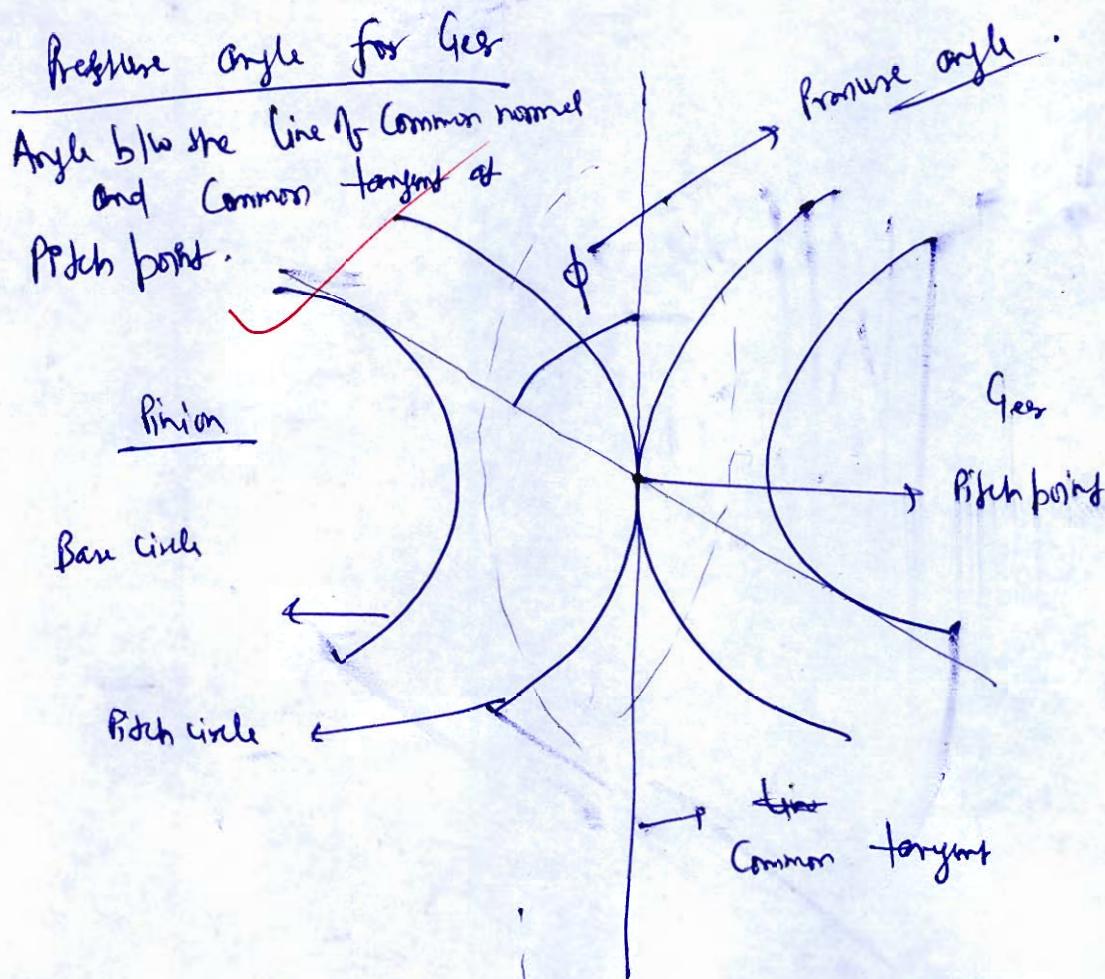 Pressure angle for Gear
Angle b/w the line of Common normal
and Common tangent at
Pitch point.
Pressure angle.
ϕ
Pinion
Gear
Pitch point
Base circle
Pitch circle
Common tangent